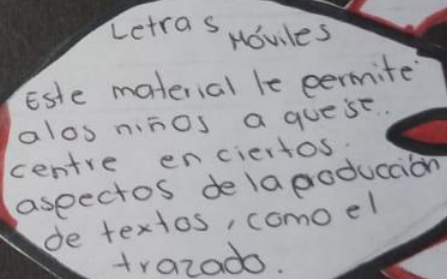 Letras Móviles
Este material le permite
alos niños a quese..
centre en ciertos.
aspectos dela producción
de textos, como el
trazado.